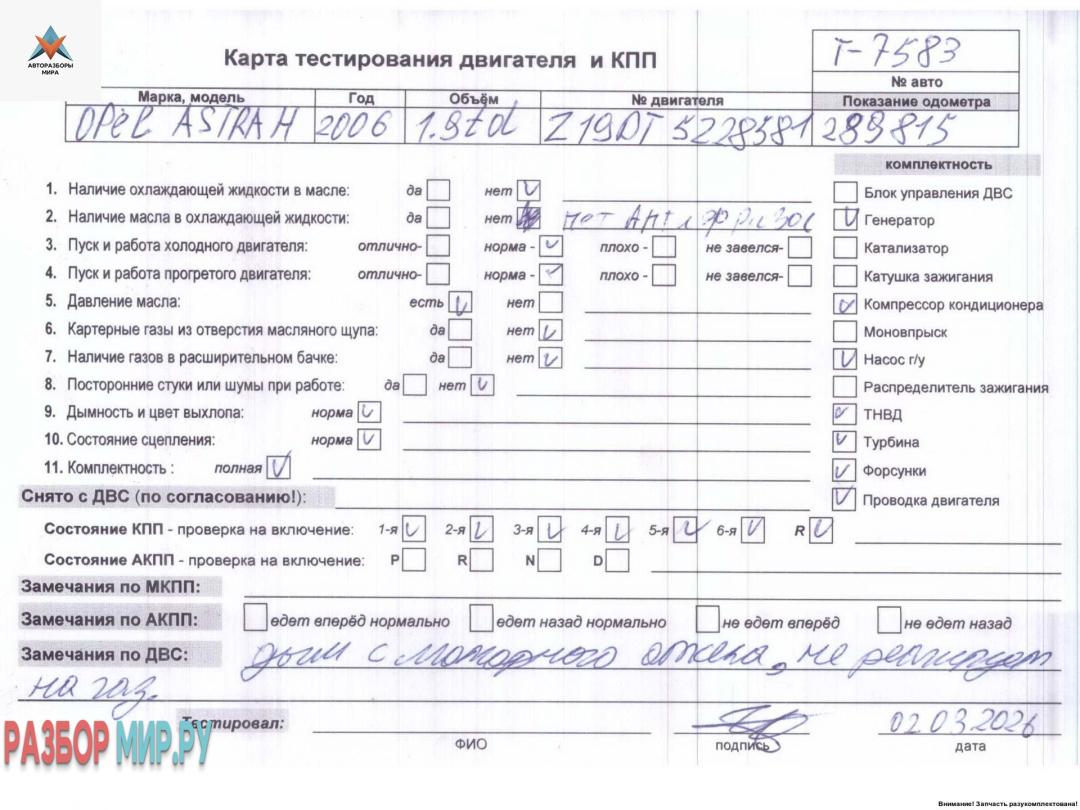 АВТОРАЗБОРЫ
МИРА
Карта тестирования двигателя и КПП
T-7583
№ авто
Марка, модель Год Объём № двигателя Показание одометра
OPEL ASTRA H 2006 1.9td Z19DT 5228581 289815
комплектность
1. Наличие охлаждающей жидкости в масле: да нет
Блок управления ДВС
2. Наличие масла в охлаждающей жидкости: да нет нет Антифриза
Генератор
3. Пуск и работа холодного двигателя: отлично- норма - плохо - не завелся-
Катализатор
4. Пуск и работа прогретого двигателя: отлично- норма - плохо - не завелся-
Катушка зажигания
5. Давление масла: есть нет
Компрессор кондиционера
6. Картерные газы из отверстия масляного щупа: да нет
Моновпрыск
7. Наличие газов в расширительном бачке: да нет
Насос г/у
8. Посторонние стуки или шумы при работе: да нет
Распределитель зажигания
9. Дымность и цвет выхлопа: норма
ТНВД
10. Состояние сцепления: норма
Турбина
11. Комплектность : полная
Форсунки
Снято с ДВС (по согласованию!):
Проводка двигателя
Состояние КПП - проверка на включение: 1-я 2-я 3-я 4-я 5-я 6-я R
Состояние АКПП - проверка на включение: P R N D
Замечания по МКПП:
Замечания по АКПП: едет вперёд нормально едет назад нормально не едет вперёд не едет назад
Замечания по ДВС: дым с моторного отсека, не реагирует
на газ.
Тестировал:
02.03.2026
ФИО подпись дата
РАЗБОРМИР.РУ
Внимание! Запчасть разукомплектована!